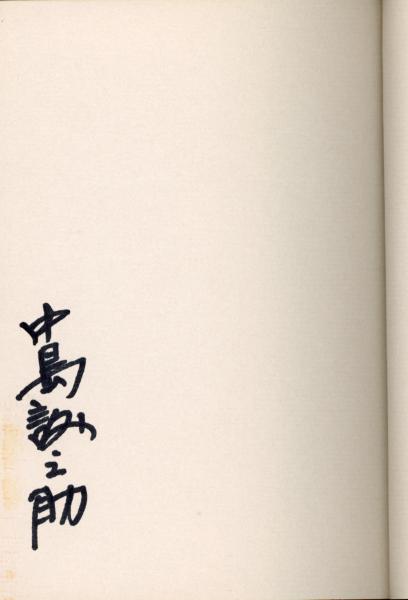 中島誠之助